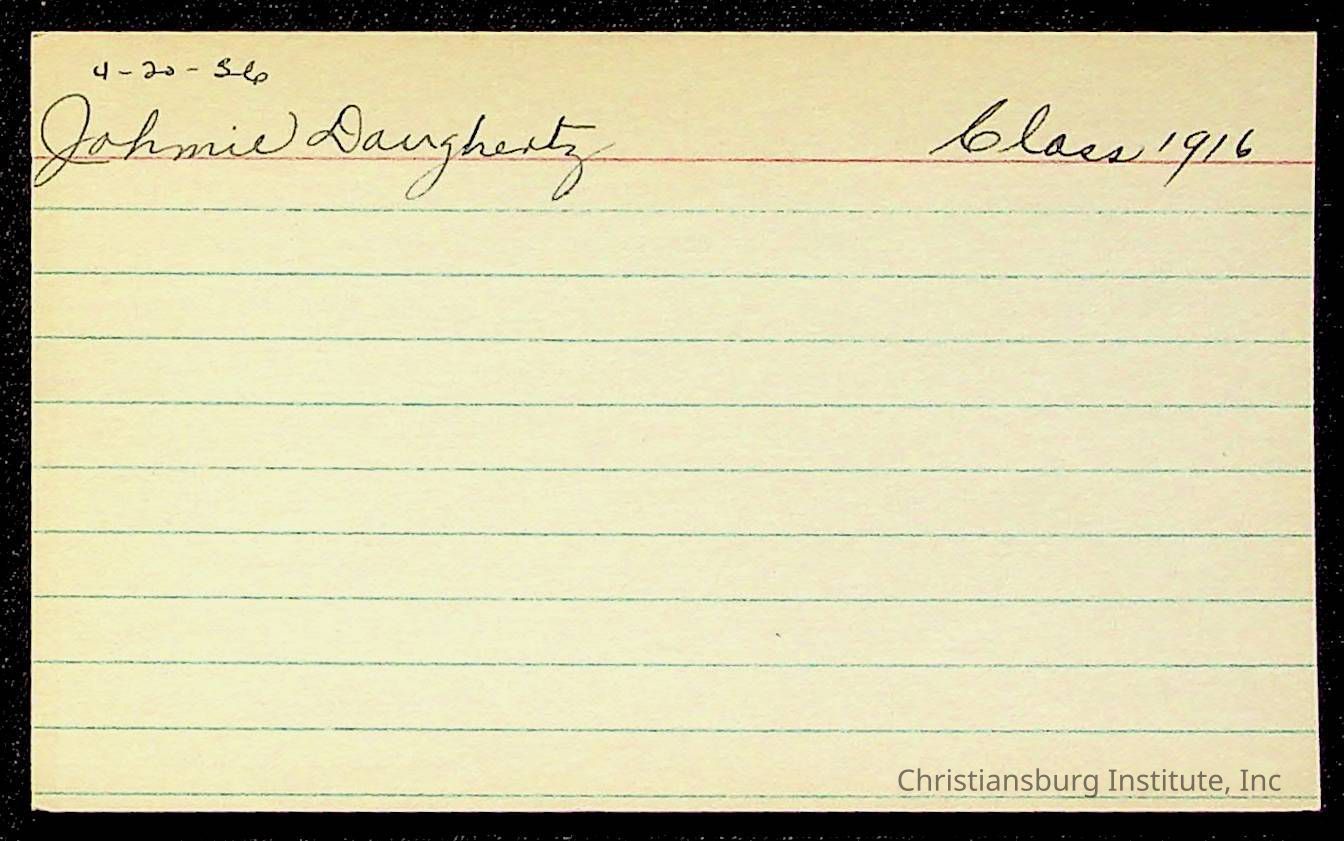 4-20-56
Johnnie Daugherty Class 1916
Christiansburg Institute, Inc